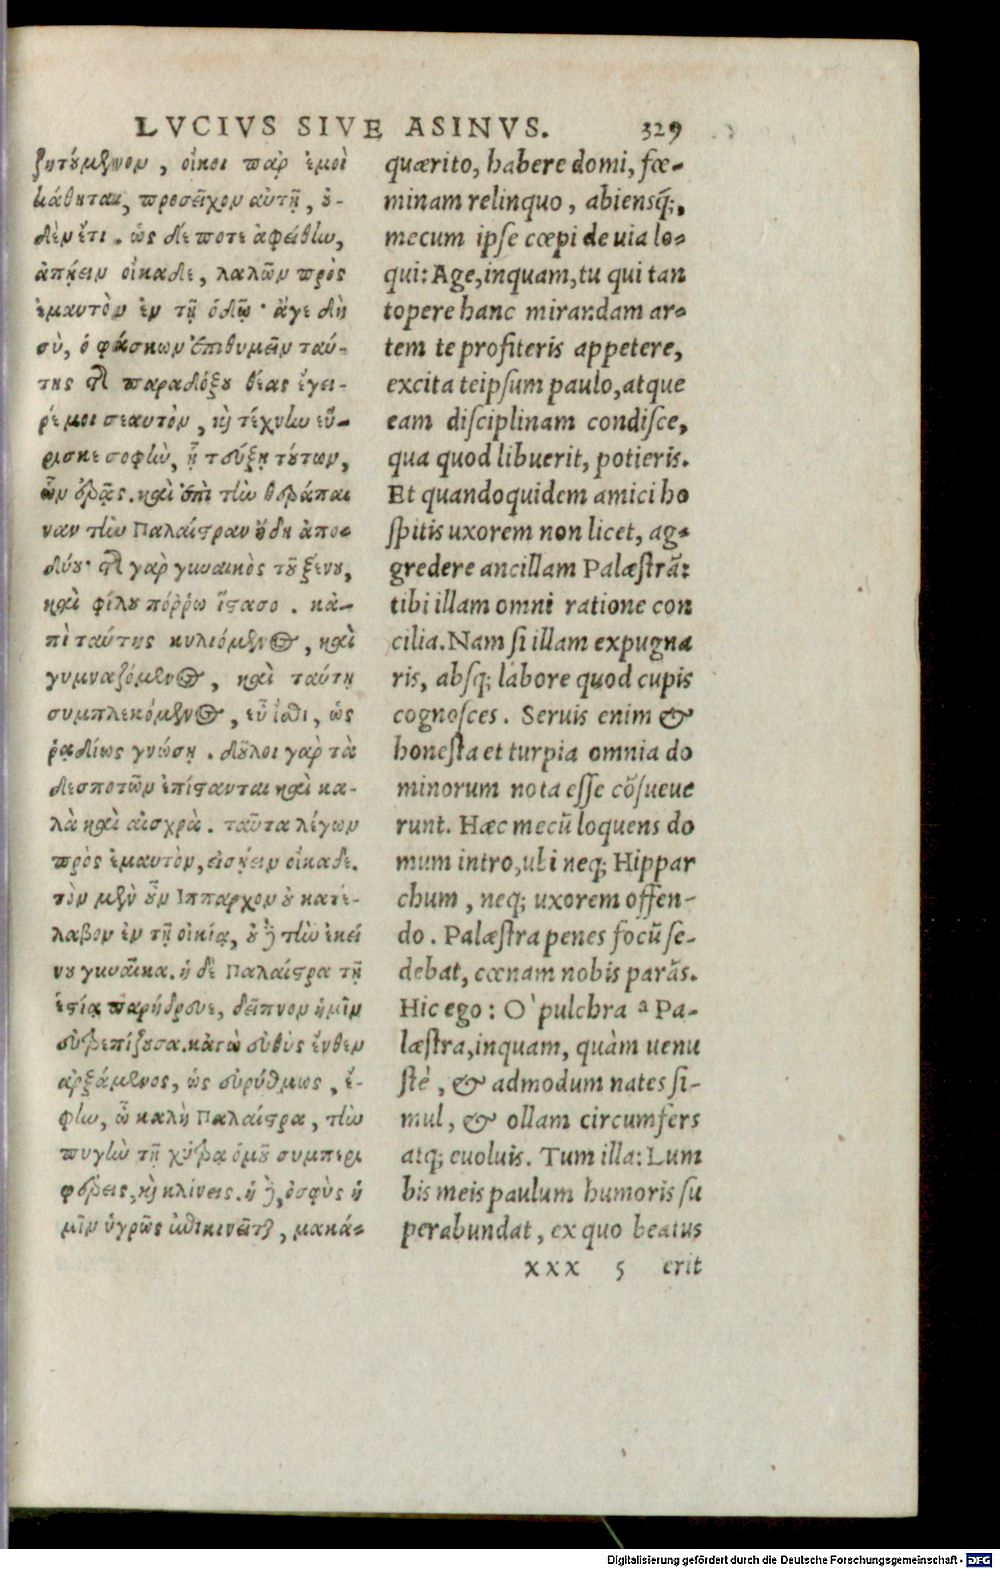 LVCIVS SIVE ASINVS. 329
ζητούμενον, οἴκοι παρ' ἐμοὶ
κάθηται, προσεῖχον αὐτῇ, οὐ-
δὲν ἔτι. ὡς δέ ποτε ἀφείθην,
ἀπῄειν οἴκαδε, λαλῶν πρὸς
ἐμαυτὸν ἐν τῇ ὁδῷ· ἄγε δὴ
σὺ, ὁ φάσκων ἐπιθυμεῖν ταύ-
της τῆς παραδόξου θέας ἔγει-
ρέ μοι σεαυτὸν, καὶ τέχνην εὕ-
ρισκε σοφὴν, ᾗ τεύξῃ τούτων,
ὧν ἐρᾷς. καὶ ἐπὶ τὴν θεράπαι
ναν τὴν Παλαίστραν ἤδη ἀπο-
δύου· τῆς γὰρ γυναικὸς τοῦ ξένου,
καὶ φίλου πόῤῥω ἵστασο. κἀ-
πὶ ταύτης κυλιόμενος, καὶ
γυμναζόμενος, καὶ ταύτῃ
συμπλεκόμενος, εὖ ἴσθι, ὡς
ῥᾳδίως γνώσῃ. δοῦλοι γὰρ τὰ
δεσποτῶν ἐπίστανται καὶ κα-
λὰ καὶ αἰσχρά. ταῦτα λέγων
πρὸς ἐμαυτὸν, εἰσῄειν οἴκαδε.
τὸν μὲν οὖν Ἵππαρχον οὐ κατέ-
λαβον ἐν τῇ οἰκίᾳ, οὐδὲ τὴν ἐκεί
νου γυναῖκα. ἡ δὲ Παλαίστρα τῇ
ἑστίᾳ παρήδρευε, δεῖπνον ἡμῖν
εὐτρεπίζουσα. κᾀγὼ εὐθὺς ἔνθεν
ἀρξάμενος, ὡς εὐρύθμως, ἔ-
φην, ὦ καλὴ Παλαίστρα, τὴν
πυγὴν τῇ χύτρᾳ ὁμοῦ συμπερι
φέρεις, καὶ κλίνεις. ἡ δὲ, ὀσφὺς ἡ
μῖν ὑγρῶς ἐπικινεῖται, μακά-
quærito, habere domi, fœ-
minam relinquo, abiensq́;,
mecum ipse cœpi de uia lo-
qui: Age, inquam, tu qui tan
topere hanc mirandam ar-
tem te profiteris appetere,
excita teipsum paulo, atque
eam disciplinam condisce,
qua quod libuerit, potieris.
Et quandoquidem amici ho
spitis uxorem non licet, ag-
gredere ancillam Palæstrã:
tibi illam omni ratione con
cilia. Nam si illam expugna
ris, absq; labore quod cupis
cognosces. Seruis enim &
honesta et turpia omnia do
minorum nota esse cõsueue
runt. Hæc mecũ loquens do
mum intro, ubi neq; Hippar
chum, neq; uxorem offen-
do. Palæstra penes focũ se-
debat, cœnam nobis parãs.
Hic ego: O` pulchra ª Pa-
læstra, inquam, quàm uenu
stè, & admodum nates si-
mul, & ollam circumfers
atq; euoluis. Tum illa: Lum
bis meis paulum humoris su
perabundat, ex quo beatus
xxx 5 erit
Digitalisierung gefördert durch die Deutsche Forschungsgemeinschaft - DFG